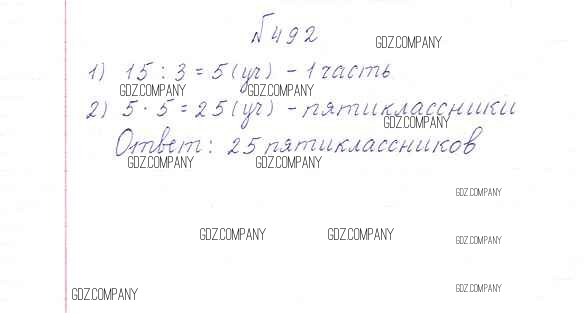 №492
GDZ.COMPANY
1) 15 : 3 = 5 (уч) - 1 часть
GDZ.COMPANY GDZ.COMPANY
2) 5 · 5 = 25 (уч) - пятиклассники
GDZ.COMPANY
Ответ: 25 пятиклассников
GDZ.COMPANY GDZ.COMPANY
GDZ.COMPANY
GDZ.COMPANY GDZ.COMPANY GDZ.COMPANY
GDZ.COMPANY GDZ.COMPANY